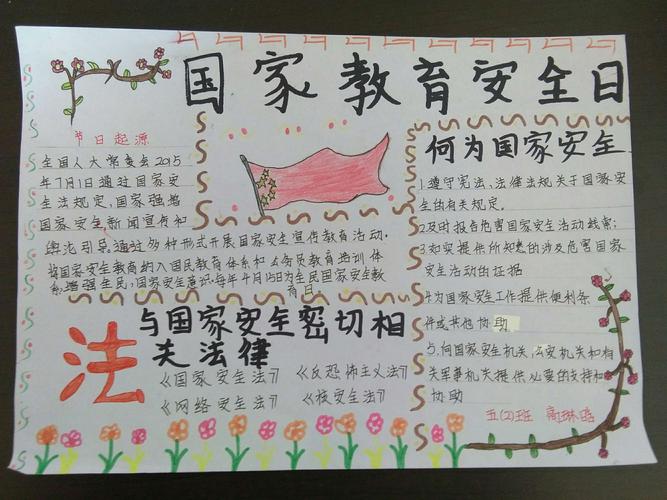 国家教育安全日
节日起源
全国人大常委会2015
年7月1日通过国家安
全法规定,国家强增
国家安全新闻宣传和
舆论引导,通过多种形式开展国家安全宣传教育活动,
将国家安全教育纳入国民教育体系和公务员教育培训体
系,增强全民,国家安全意识,每年4月15日为全民国家安全教
育日。
何为国家安全
1.遵守宪法、法律法规关于国家安
全的有关规定.
2及时报告危害国家安全活动线索;
3如实提供所知悉的涉及危害国家
安全活动的证据
4为国家安全工作提供便利条
件或其他协助
5.向国家安全机关、公安机关和有
关军事机关提供必要的支持和
协助
法
与国家安全密切相
关法律
《国家安全法》 《反恐怖主义法》
《网络安全法》 《核安全法》
五(2)班